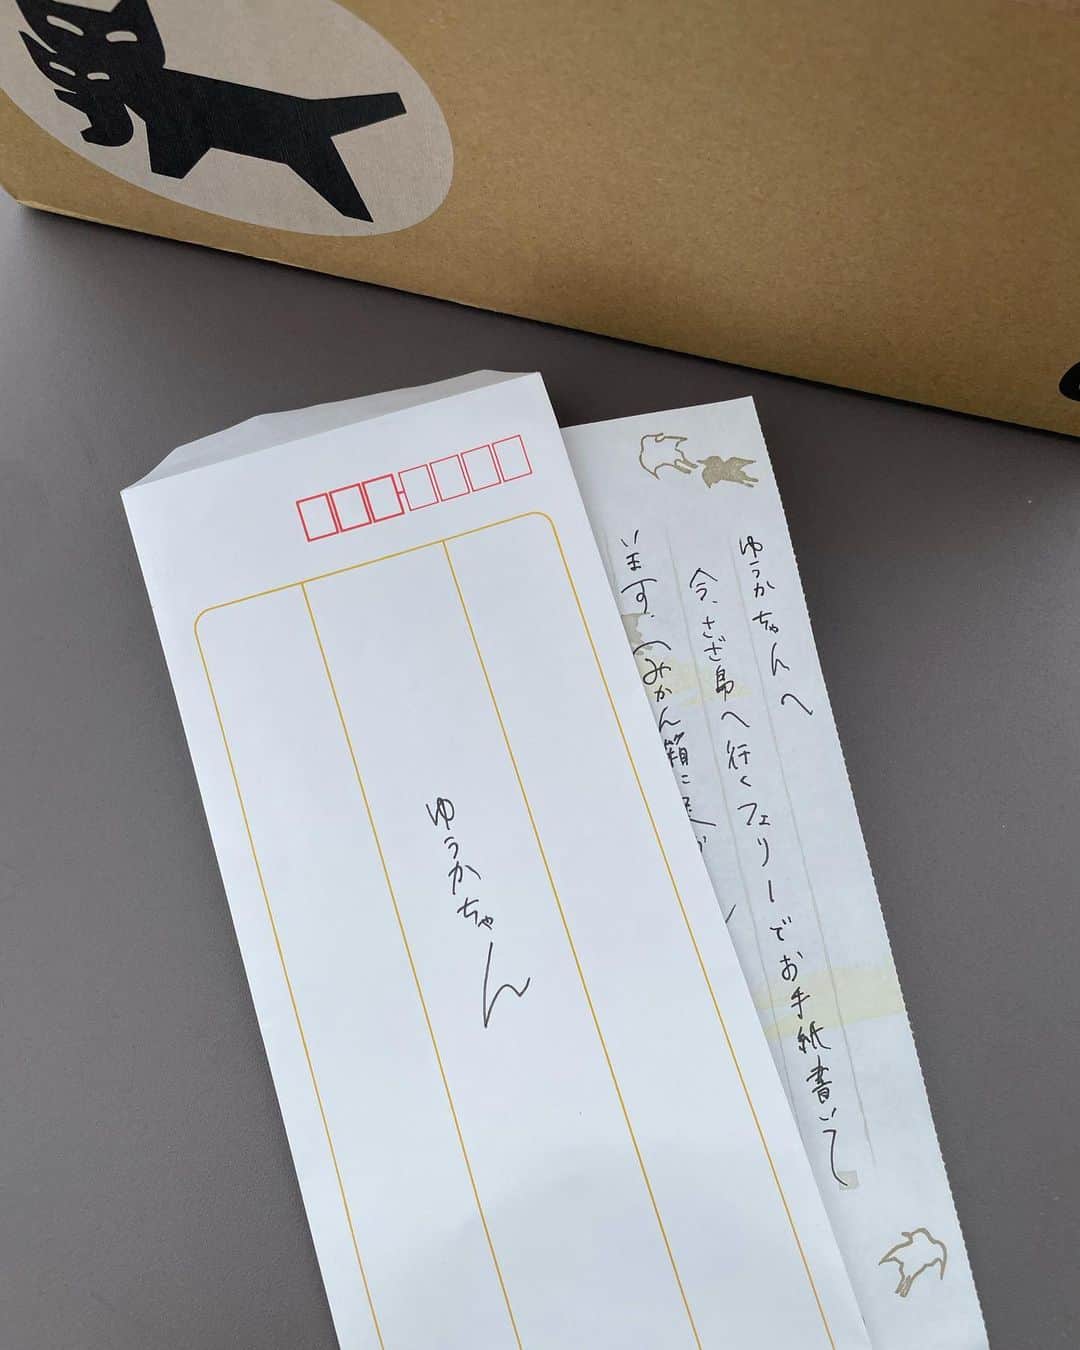 ゆうかちゃん
ゆうかちゃんへ
今、さざ島へ行くフェリーでお手紙書いて
います。(みかん箱に